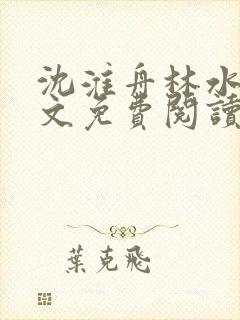 沈淮舟林水
文免費閱讀
葉克飛